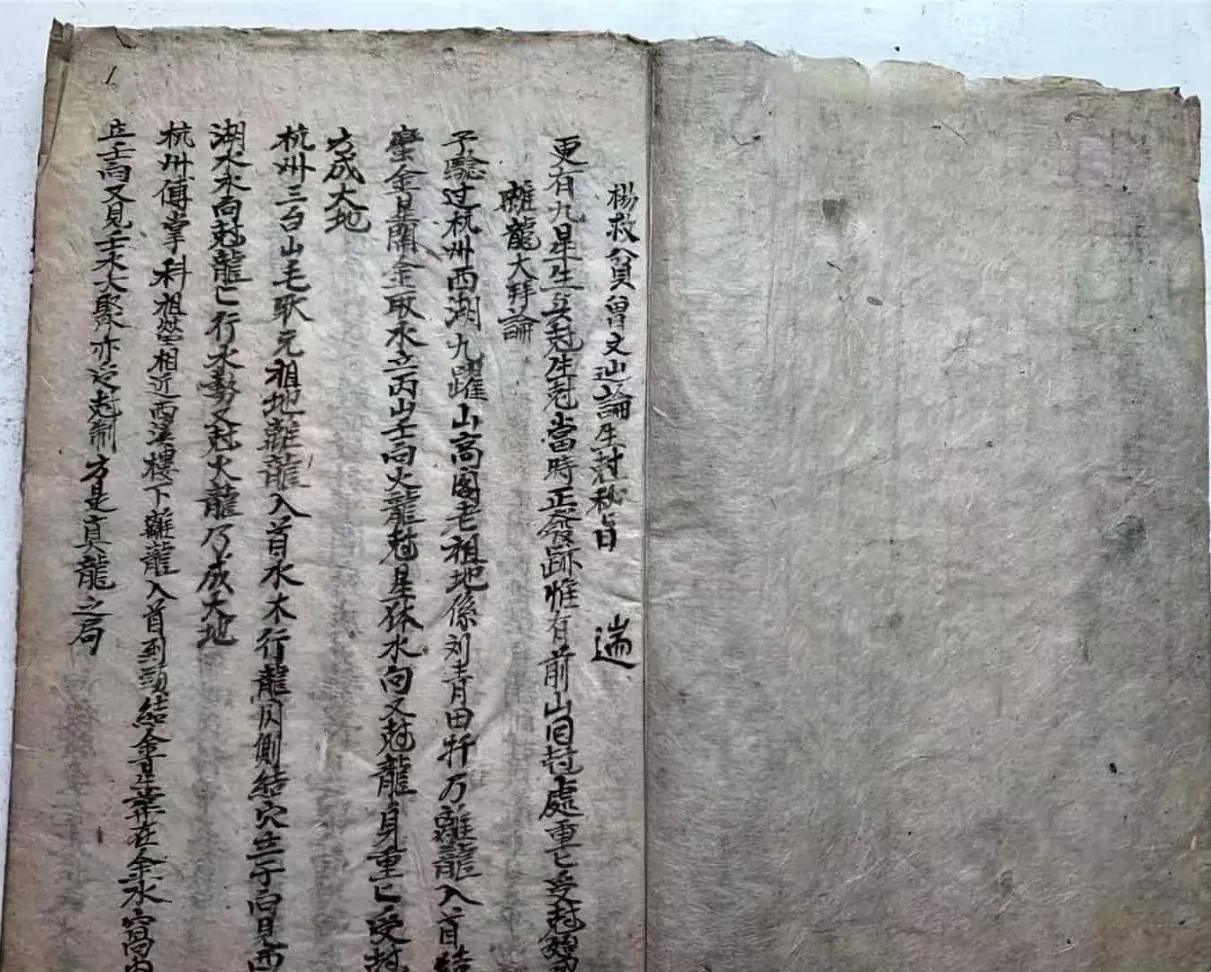 楊救貧曾文辿論生尅秘旨　遄
更有九星生與尅生尅當時正發跡惟有前山回尅處重〻受尅
離龍大拜論
予驗过杭州西湖九躍山高閣老祖地係刘青田扦乃離龍入首結
金星開金取水立丙山壬向火龍尅星体水向又尅龍身重〻受尅
方成大地
杭州三台山毛狀元祖地離龍入首水木行龍閃側結穴立子向見西
湖水水向尅龍〻行水勢又尅火龍乃成大地
杭州傅掌科祖塋相近西溪樓下離龍入首到頭結金星葬在金水窩内
立壬向又見壬水大聚亦是尅制方是真龍之局